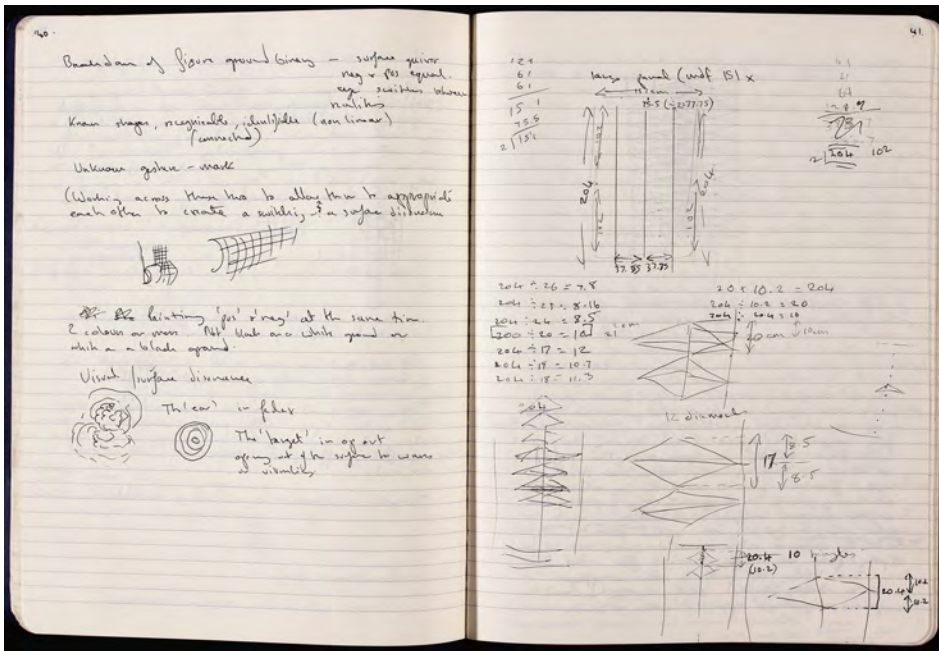 40.
Breakdown of figure ground binary – surface quiver
neg + pos equal.
eye switches between
realities
Known shapes, recognisable, identifiable (non linear)
(connected)
Unknown gesture – mark
(Working across these two to allow them to appropriate
each other to create a switching & a surface dissonance
Painting 'pos' & 'neg' at the same time.
2 colours or more Not black on a white ground or
white on a black ground.
Visual / surface dissonance
Th' ear' in
The 'target' in op art
opening out of the surface to waves
or vibrations
41.
121
61
61
151
75.5
2 | 151
large panel (mdf 151 x
151cm
75.5 (÷2=37.75)
204
102
102
102
102
204
37.75
37.75
2 | 204
102
204 ÷ 26 = 7.8
204 ÷ 25 = 8.16
204 ÷ 24 = 8.5
200 ÷ 20 = 10
204 ÷ 17 = 12
204 ÷ 19 = 10.7
204 ÷ 18 = 11.3
20 x 10.2 = 204
204 ÷ 10.2 = 20
204 ÷ 20.4 = 10
20cm
10cm
204
12 diamonds
17
8.5
8.5
20.4
(10.2)
10
20.4
10.2
10.2